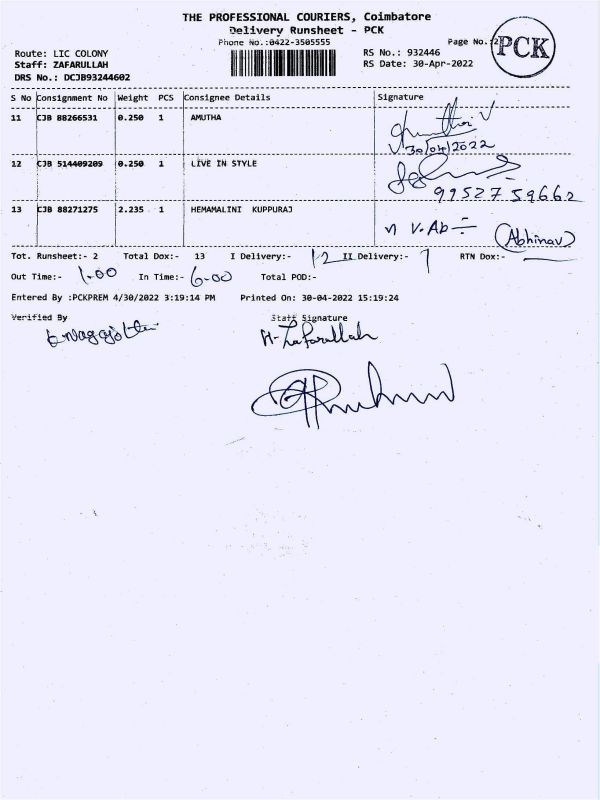 THE PROFESSIONAL COURIERS, Coimbatore
Delivery Runsheet - PCK
Phone No.:0422-3505555
Page No.:2
PCK
Route: LIC COLONY
RS No.: 932446
Staff: ZAFARULLAH
RS Date: 30-Apr-2022
DRS No.: DCJB93244602
S No Consignment No Weight PCS Consignee Details Signature
11 CJB 88266531 0.250 1 AMUTHA
30/04/2022
12 CJB 514409209 0.250 1 LIVE IN STYLE
9952759662
13 CJB 88271275 2.235 1 HEMAMALINI KUPPURAJ
(Abhinav)
Tot. Runsheet:- 2 Total Dox:- 13 I Delivery:- 12 II Delivery:- 1 RTN Dox:-
Out Time:- 1.00 In Time:- 6.00 Total POD:-
Entered By :PCKPREM 4/30/2022 3:19:14 PM Printed On: 30-04-2022 15:19:24
Verified By Staff Signature